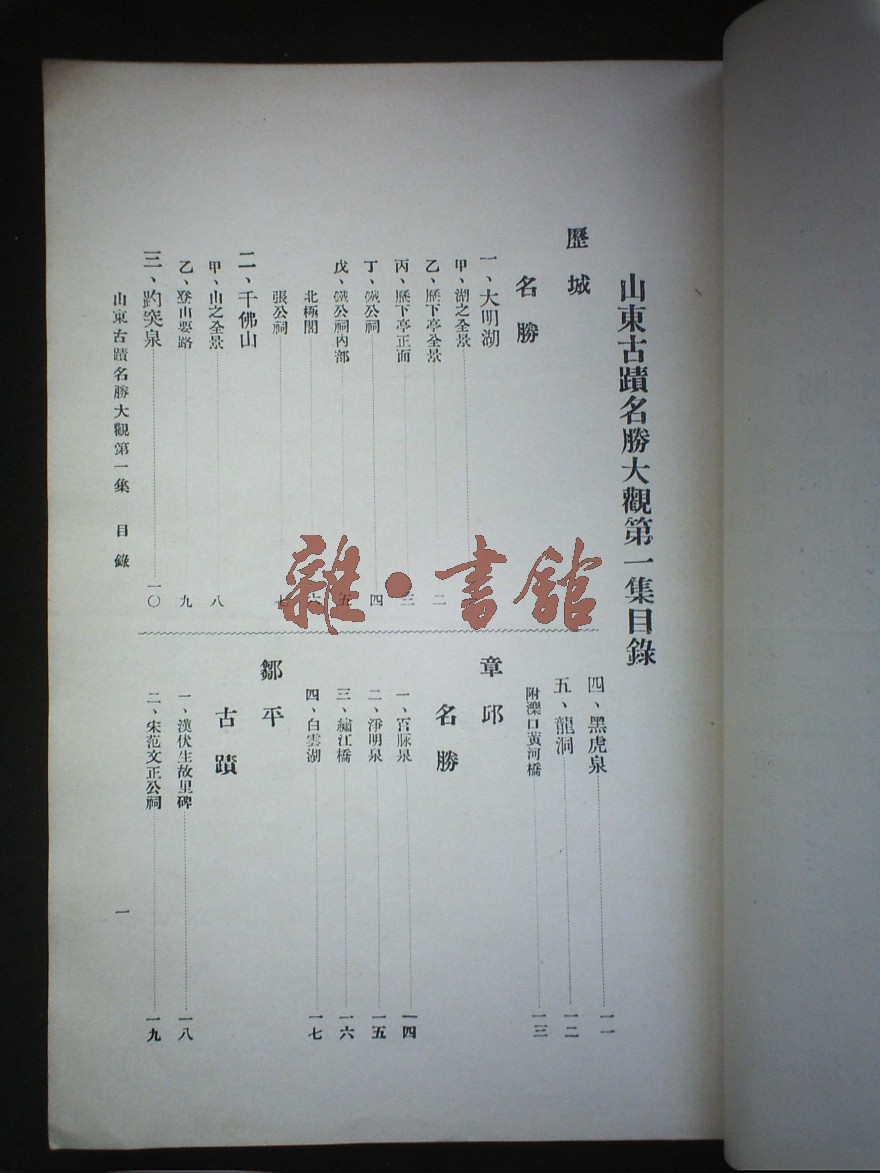 山東古蹟名勝大觀第一集目錄
歷城
名勝
一、大明湖
甲、湖之全景
乙、歷下亭全景 二
丙、歷下亭正面 三
丁、鐵公祠 四
戊、鐵公祠內部 五
北極閣 六
張公祠 七
二、千佛山
甲、山之全景 八
乙、登山要路 九
三、趵突泉 一〇
四、黑虎泉 一一
五、龍洞 一二
附濼口黃河橋 一三
章邱
名勝
一、百脉泉 一四
二、淨明泉 一五
三、繡江橋 一六
四、白雲湖 一七
鄒平
古蹟
一、漢伏生故里碑 一八
二、宋范文正公祠 一九
山東古蹟名勝大觀第一集 目錄
一
雜·書館